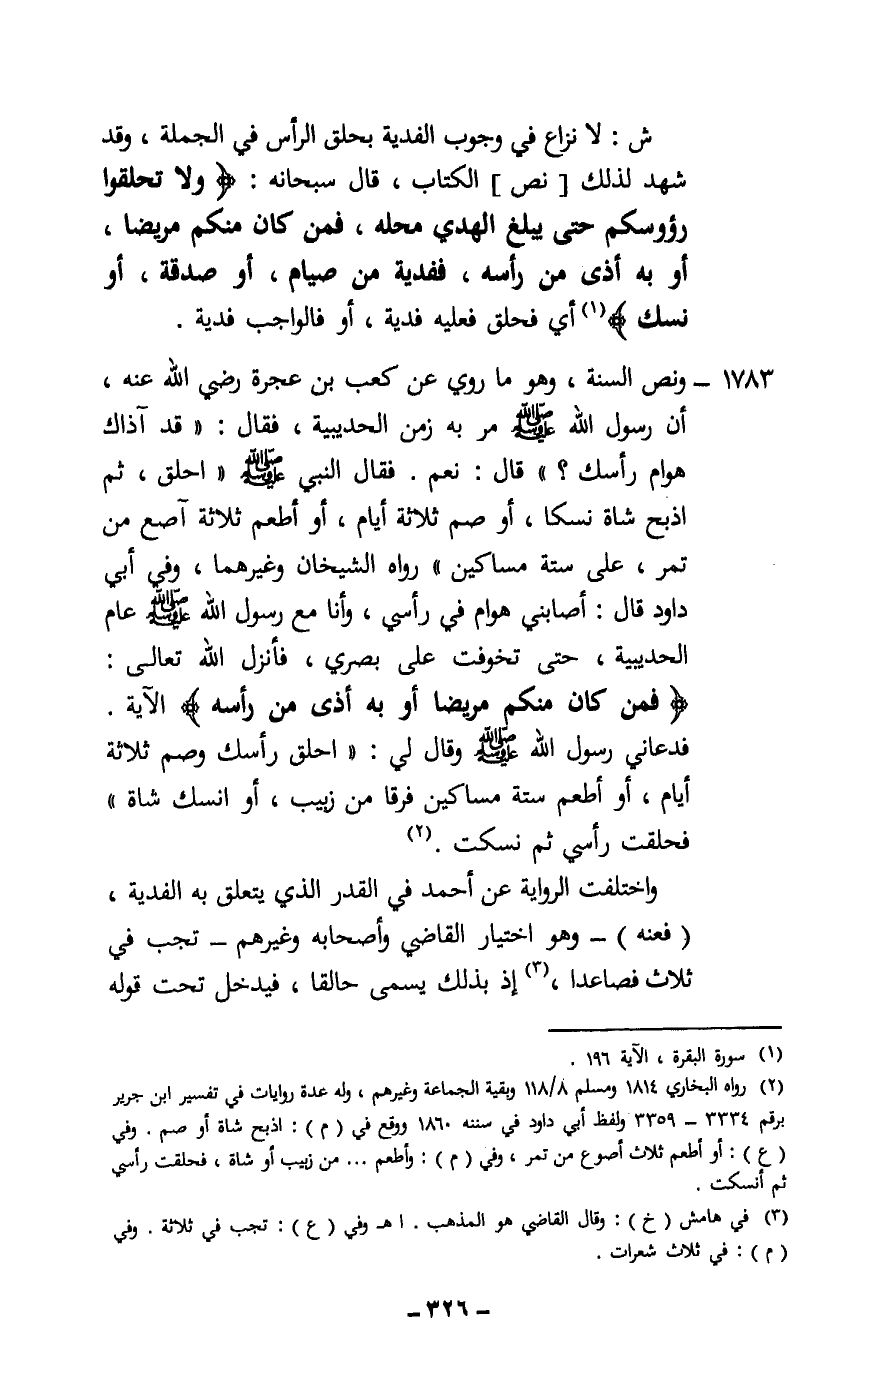 ش : لا نزاع في وجوب الفدية بحلق الرأس في الجملة ، وقد
شهد لذلك [ نص ] الكتاب ، قال سبحانه : ﴿ ولا تحلقوا
رؤوسكم حتى يبلغ الهدي محله ، فمن كان منكم مريضا ،
أو به أذى من رأسه ، ففدية من صيام ، أو صدقة ، أو
نسك ﴾(١) أي فحلق فعليه فدية ، أو فالواجب فدية .
١٧٨٣ – ونص السنة ، وهو ما روي عن كعب بن عجرة رضي الله عنه ،
أن رسول الله ﷺ مر به زمن الحديبية ، فقال : « قد آذاك
هوام رأسك ؟ » قال : نعم . فقال النبي ﷺ « احلق ، ثم
اذبح شاة نسكا ، أو صم ثلاثة أيام ، أو أطعم ثلاثة آصع من
تمر ، على ستة مساكين » رواه الشيخان وغيرهما ، وفي أبي
داود قال : أصابني هوام في رأسي ، وأنا مع رسول الله ﷺ عام
الحديبية ، حتى تخوفت على بصري ، فأنزل الله تعالى :
﴿ فمن كان منكم مريضا أو به أذى من رأسه ﴾ الآية .
فدعاني رسول الله ﷺ وقال لي : « احلق رأسك وصم ثلاثة
أيام ، أو أطعم ستة مساكين فرقا من زبيب ، أو انسك شاة »
فحلقت رأسي ثم نسكت .(٢)
واختلفت الرواية عن أحمد في القدر الذي يتعلق به الفدية ،
( فعنه ) – وهو اختيار القاضي وأصحابه وغيرهم – تجب في
ثلاث فصاعدا ،(٣) إذ بذلك يسمى حالقا ، فيدخل تحت قوله
(١) سورة البقرة ، الآية ١٩٦ .
(٢) رواه البخاري ١٨١٤ ومسلم ١١٨/٨ وبقية الجماعة وغيرهم ، وله عدة روايات في تفسير ابن جرير
برقم ٣٣٣٤ – ٣٣٥٩ ولفظ أبي داود في سننه ١٨٦٠ ووقع في ( م ) : اذبح شاة أو صم . وفي
( ع ) : أو أطعم ثلاث أصوع من تمر ، وفي ( م ) : وأطعم ... من زبيب أو شاة ، فحلقت رأسي
ثم أنسكت .
(٣) في هامش ( خ ) : وقال القاضي هو المذهب . ا هـ وفي ( ع ) : تجب في ثلاثة . وفي
( م ) : في ثلاث شعرات .
– ٣٢٦ –